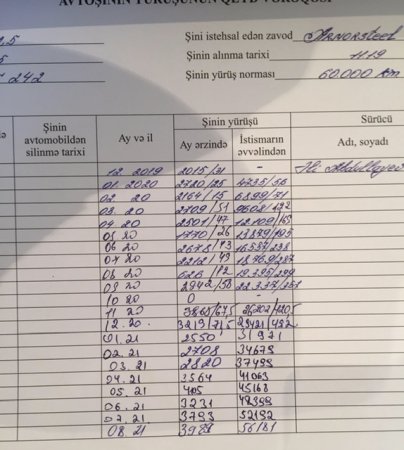 AVTOŞİNİN YÜRÜŞÜNÜN QEYD VƏRƏQƏSİ
Şini istehsal edən zavod
Şinin alınma tarixi 1119
Şinin yürüş norması 60.000 km
242
Şinin avtomobildən silinmə tarixi
Ay və il
Şinin yürüşü
Ay ərzində
İstismarın əvvəlindən
Sürücü
Adı, soyadı
12.2019 2015/31 -
01.2020 2720/25 4735/56
02.20 2164/15 6899/71
03.20 2709/51 9608/122
04.20 2501/47 12109/169
05.20 1770/26 13879/195
06.20 2678/43 16557/238
07.20 2212/49 18769/287
08.20 626/12 19395/299
09.20 2942/58 22337/357
10.20 0 -
11.20 3865/63,5 26202/420,5
12.20. 3219/71,5 29421/492
01.21 2550 31971
02.21 2708 34679
03.21 2820 37499
04.21 3564 41063
05.21 4105 45168
06.21 3231 48399
07.21 3793 52192
08.21 3989 56181